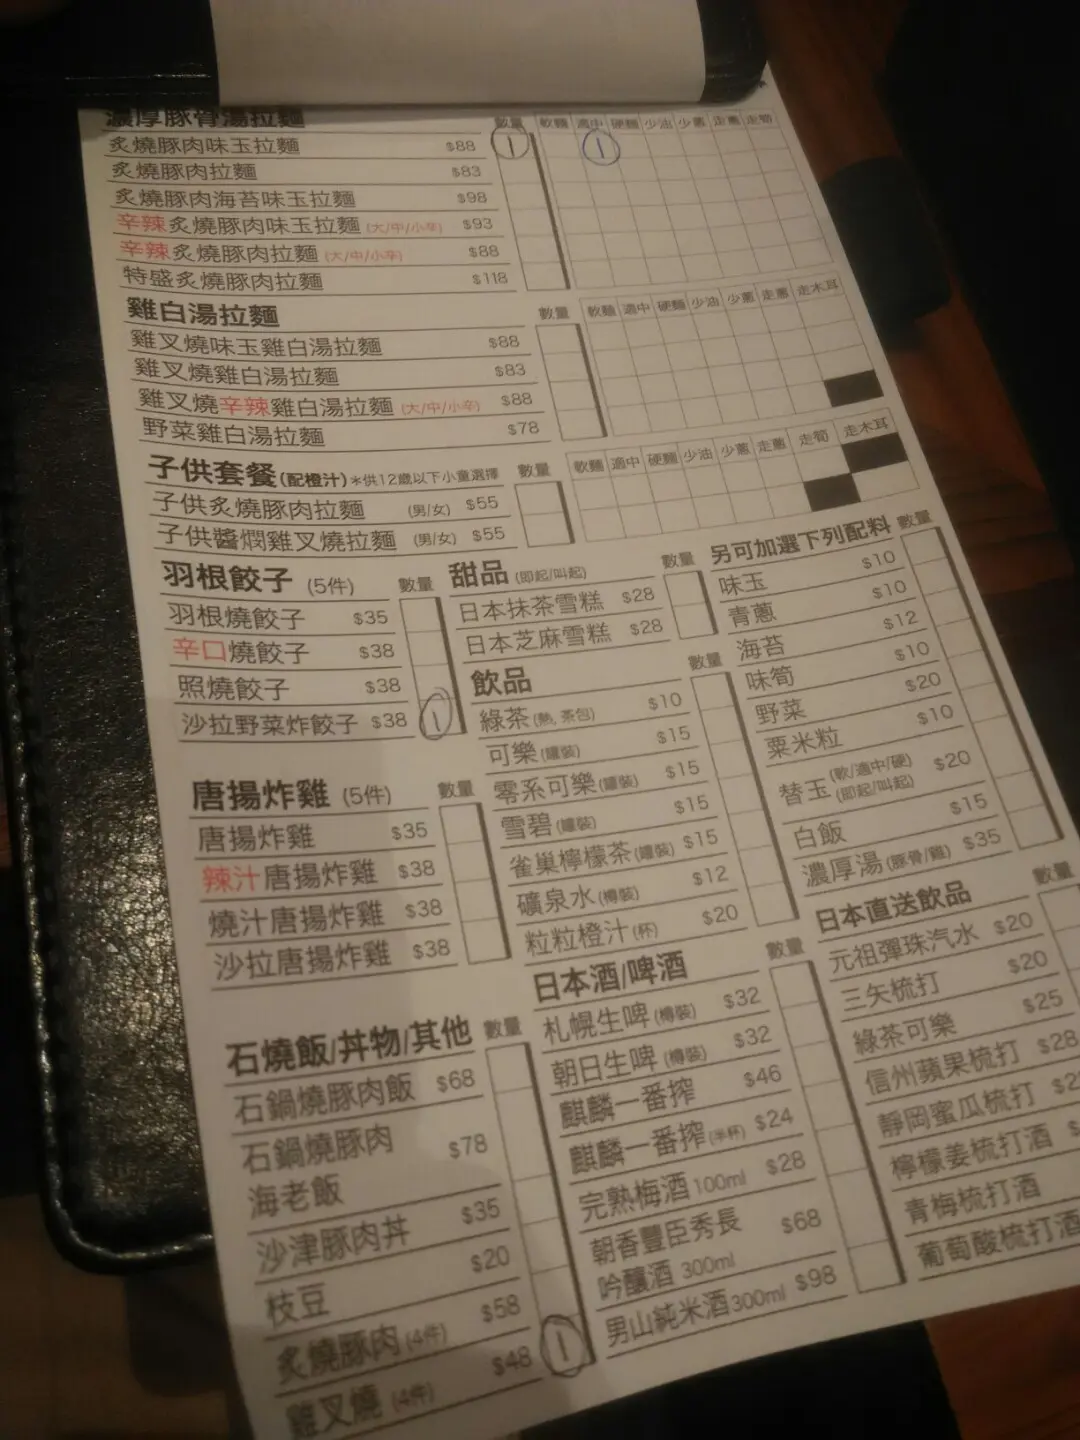 濃厚豚骨湯拉麵 數量 軟麵 適中 硬麵 少油 少蔥 走蔥 走筍
炙燒豚肉味玉拉麵 $88 1 1
炙燒豚肉拉麵 $83
炙燒豚肉海苔味玉拉麵 $98
辛辣炙燒豚肉味玉拉麵 (大/中/小辛) $93
辛辣炙燒豚肉拉麵 (大/中/小辛) $88
特盛炙燒豚肉拉麵 $118
雞白湯拉麵 數量 軟麵 適中 硬麵 少油 少蔥 走蔥 走木耳
雞叉燒味玉雞白湯拉麵 $88
雞叉燒雞白湯拉麵 $83
雞叉燒辛辣雞白湯拉麵 (大/中/小辛) $88
野菜雞白湯拉麵 $78
子供套餐(配橙汁)*供12歲以下小童選擇 數量 軟麵 適中 硬麵 少油 少蔥 走蔥 走筍 走木耳
子供炙燒豚肉拉麵 (男/女) $55
子供醬燜雞叉燒拉麵 (男/女) $55
羽根餃子 (5件) 數量
羽根燒餃子 $35
辛口燒餃子 $38
照燒餃子 $38
沙拉野菜炸餃子 $38 1
唐揚炸雞 (5件) 數量
唐揚炸雞 $35
辣汁唐揚炸雞 $38
燒汁唐揚炸雞 $38
沙拉唐揚炸雞 $38
石燒飯/丼物/其他 數量
石鍋燒豚肉飯 $68
石鍋燒豚肉
海老飯 $78
沙津豚肉丼 $35
枝豆 $20
炙燒豚肉(4件) $58
雞叉燒 (4件) $48 1
甜品 (即起/叫起) 數量
日本抹茶雪糕 $28
日本芝麻雪糕 $28
飲品 數量
綠茶(熱, 茶包) $10
可樂(罐裝) $15
零系可樂(罐裝) $15
雪碧(罐裝) $15
雀巢檸檬茶(罐裝) $15
礦泉水(樽裝) $12
粒粒橙汁(杯) $20
日本酒/啤酒 數量
札幌生啤(樽裝) $32
朝日生啤(樽裝) $32
麒麟一番搾 $46
麒麟一番搾(半杯) $24
完熟梅酒100ml $28
朝香豐臣秀長
吟釀酒 300ml $68
男山純米酒300ml $98
另可加選下列配料 數量
味玉 $10
青蔥 $10
海苔 $12
味筍 $10
野菜 $20
粟米粒 $10
替玉(軟/適中/硬)(即起/叫起) $20
白飯 $15
濃厚湯(豚骨/雞) $35
日本直送飲品 數量
元祖彈珠汽水 $20
三矢梳打 $20
綠茶可樂 $25
信州蘋果梳打 $28
靜岡蜜瓜梳打
檸檬姜梳打酒
青梅梳打酒
葡萄酸梳打酒